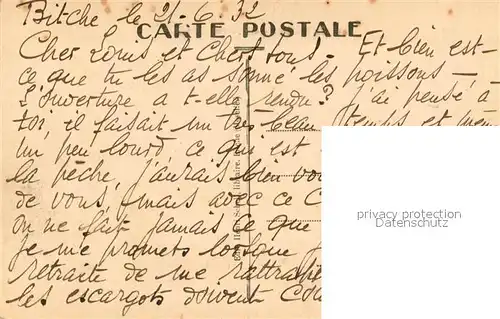 Bitche le 21-6.32
CARTE POSTALE
Cher Louis et Chers tous - Et bien est-
ce que tu les as sonné les poissons —
L'ouverture a t-elle rendu? j'ai pensé à
toi, il faisait un très beau temps et même
un peu lourd, ce que est
la pêche, j'aurais bien vou
de vous, mais avec ce C
on ne fait jamais ce que
je me promets lorsque j
retraite de me rattrape
les escargots doivent cou
privacy protection
Datenschutz